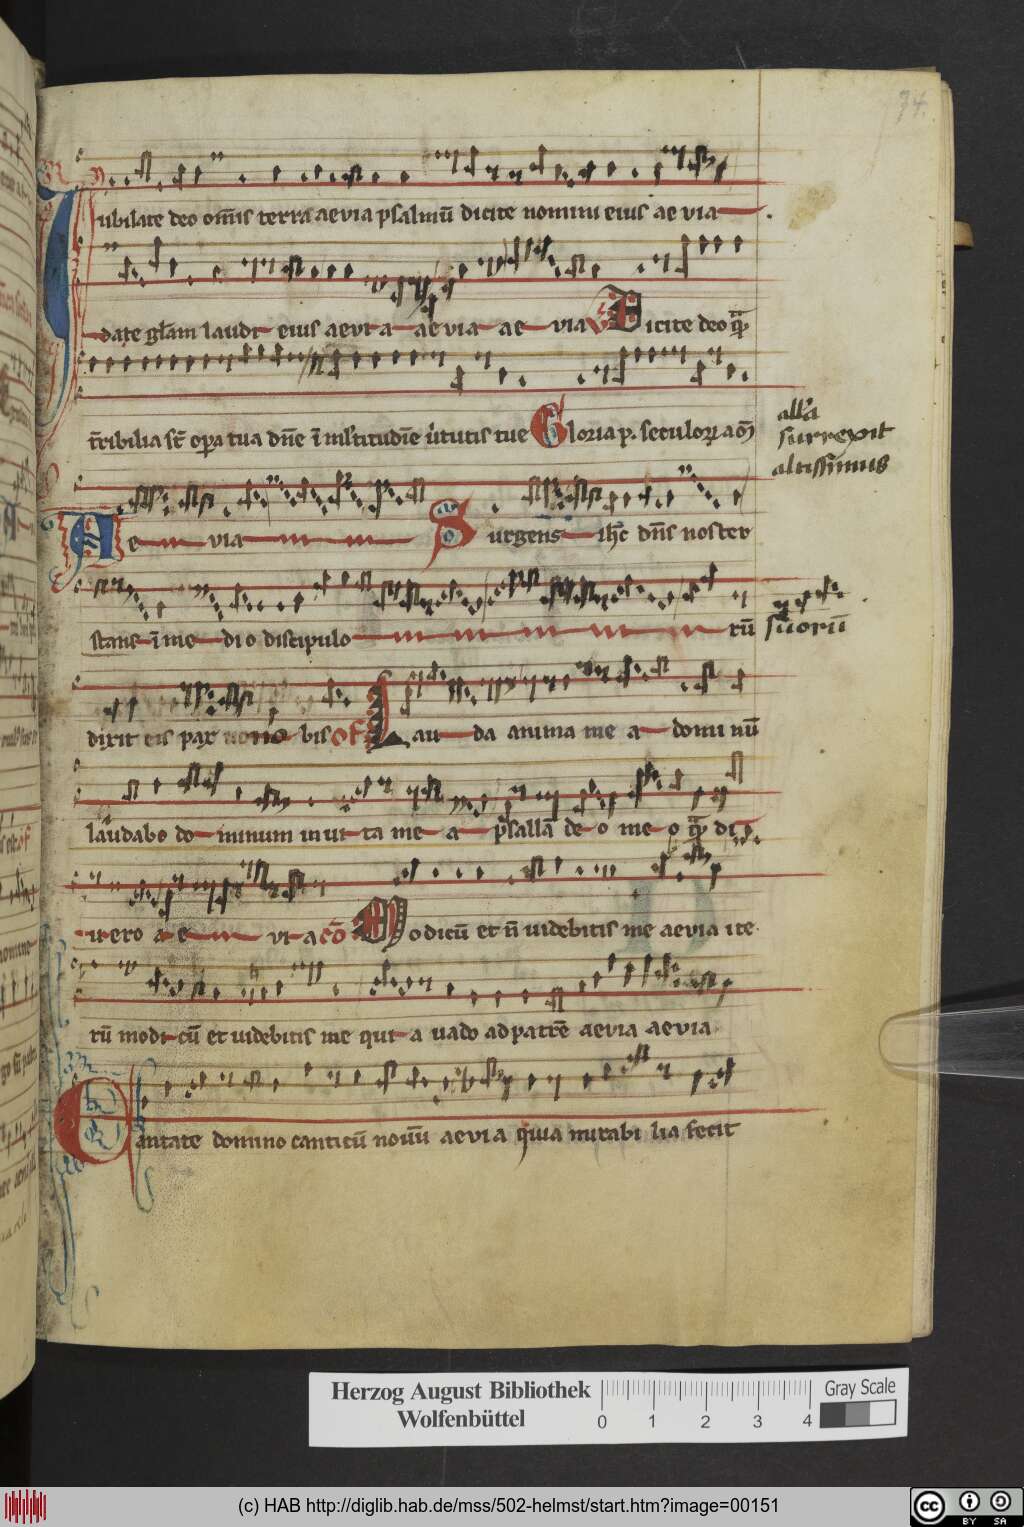 74.
Iubilate deo om̄is terra aevia psalmū dicite nomini eius ae via
date gl̄am laudi eius aevi a ae via ae via Dicite deo q̄
t̄ribilia st̄ opa tua dn̄e ī ml̄titudīe v̓tutis tue Gloria p. seculoꝝ am̄
all̄a
surrexit
altissimus
Ae via Surgens ih̄c dn̄s noster
stans ī me di o discipulo rū suorū
dixit eis pax bis of Lau da anima me a domi nū
laudabo do minum in vi ta me a psallā de o me o q̄
ero a e vi a cō Modicū et n̄ videbitis me aevia ite
rū modi cū et videbitis me qui a vado ad patrē aevia aevia
Cantate domino canticū novū aevi a quia mirabi lia fecit
Herzog August Bibliothek
Wolfenbüttel
0 1 2 3 4
Gray Scale
(c) HAB http://diglib.hab.de/mss/502-helmst/start.htm?image=00151
cc BY SA